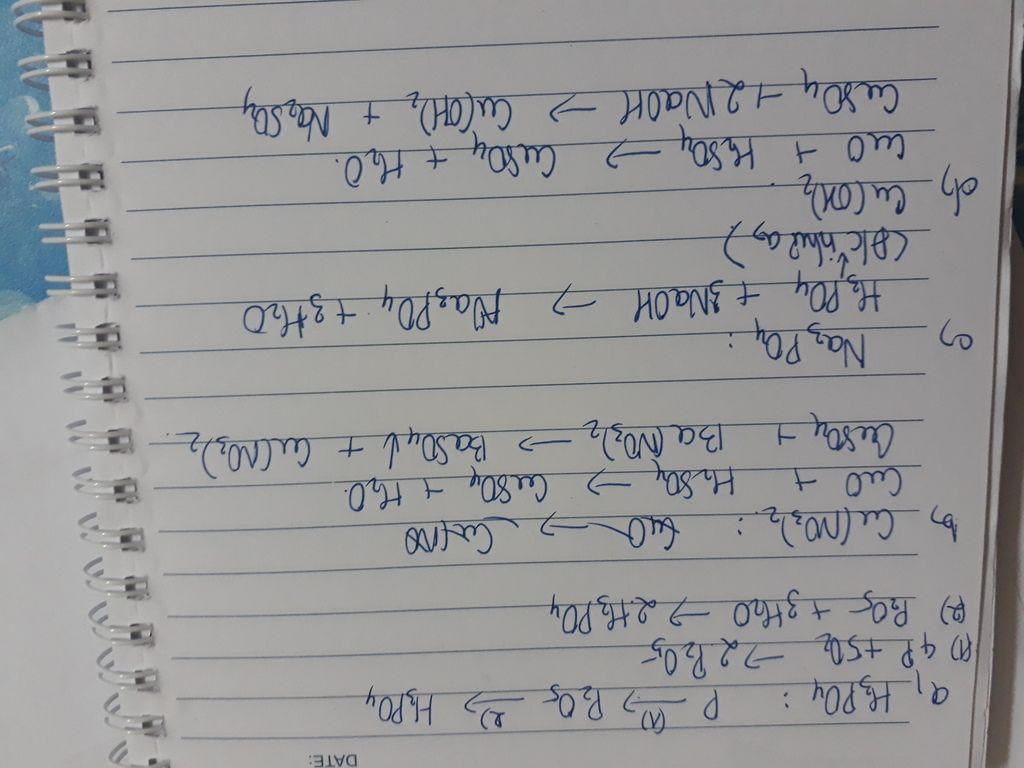 DATE:
a, H₃PO₄ : P —(1)→ P₂O₅ —2)→ H₃PO₄
(1) 4P + 5O₂ → 2P₂O₅
(2) P₂O₅ + 3H₂O → 2H₃PO₄
b, Cu(NO₃)₂ : CuO → Cu(NO
CuO + H₂SO₄ → CuSO₄ + H₂O.
CuSO₄ + Ba(NO₃)₂ → BaSO₄↓ + Cu(NO₃)₂.
c, Na₃PO₄ :
H₃PO₄ + 3NaOH → Na₃PO₄ + 3H₂O
(ĐC như a,)
d, Cu(OH)₂.
CuO + H₂SO₄ → CuSO₄ + H₂O.
CuSO₄ + 2NaOH → Cu(OH)₂ + Na₂SO₄